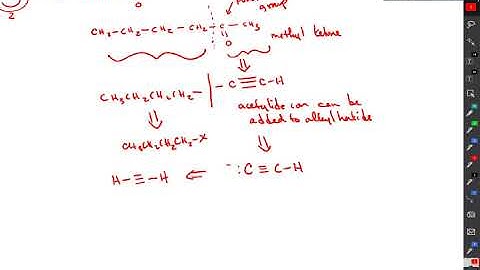 2
O
group
CH₃-CH₂-CH₂-CH₂-C-CH₃
O
methyl ketone
CH₃CH₂CH₂CH₂- -C≡C-H
acetylide ion can be
added to alkyl halide
CH₃CH₂CH₂CH₂-X
H-≡-H ⇐ ⁻:C≡C-H